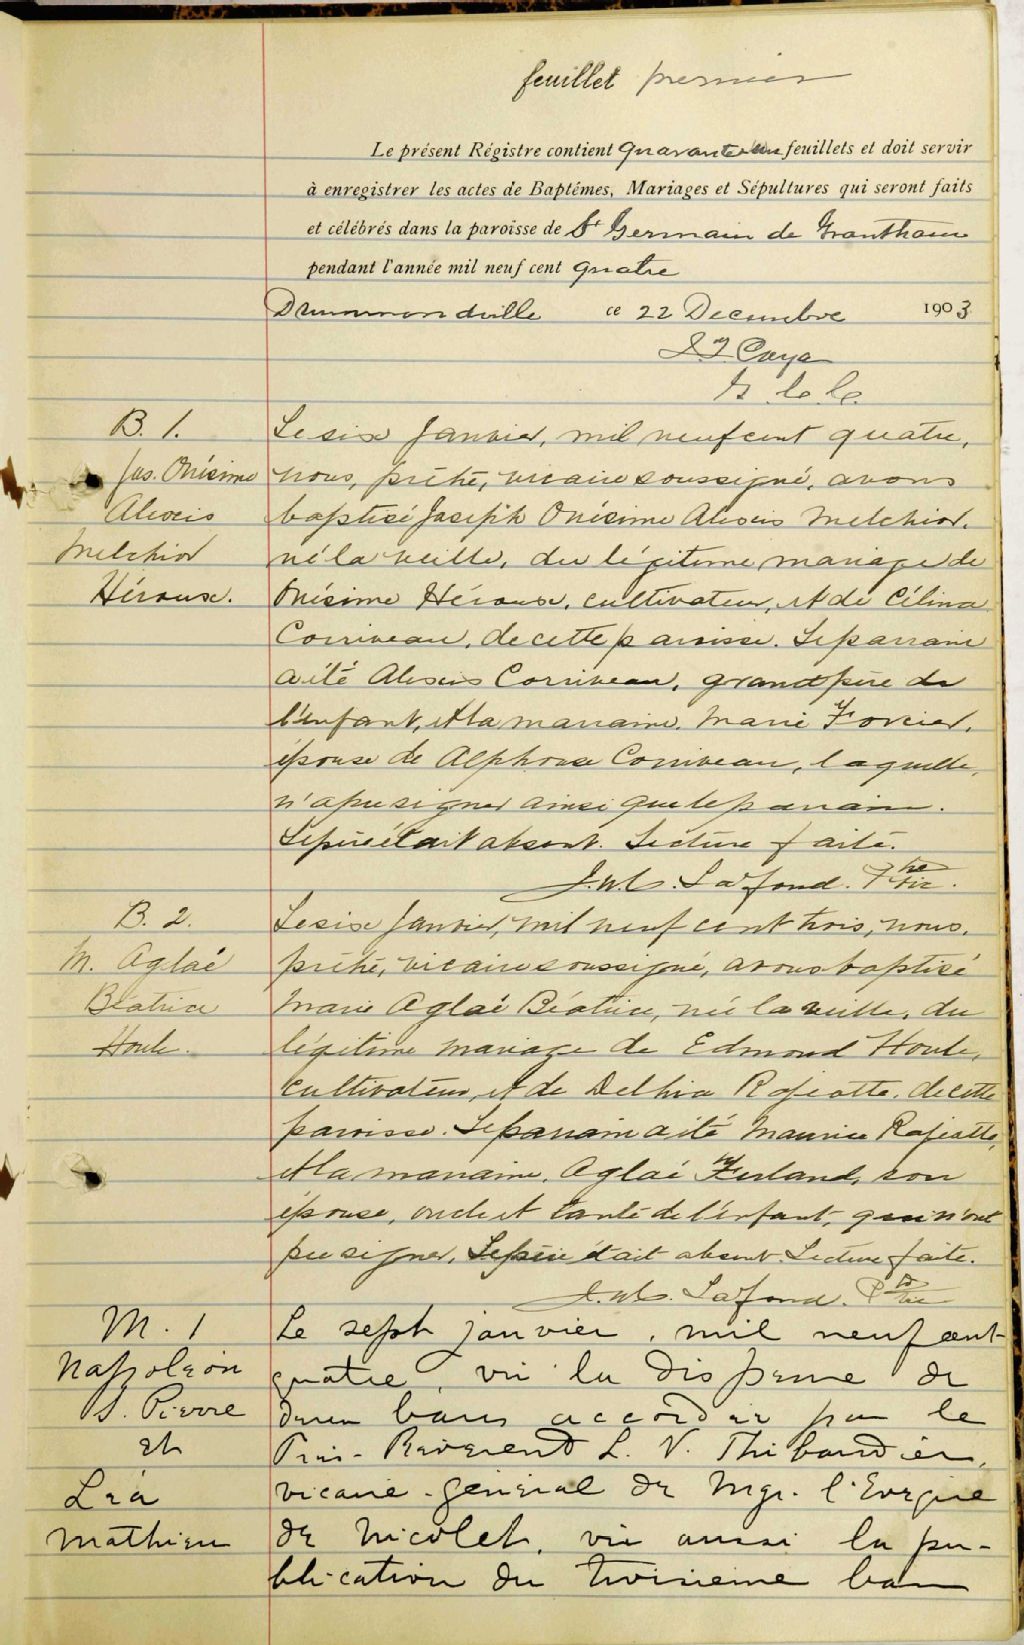 feuillet premier
Le présent Régistre contient quarante un feuillets et doit servir
à enregistrer les actes de Baptêmes, Mariages et Sépultures qui seront faits
et célébrés dans la paroisse de St Germain de Grantham
pendant l'année mil neuf cent quatre
Drummondville ce 22 Decembre 1903
J. I. Caya
G. C. C.
B. 1. Le six Janvier, mil neuf cent quatre,
Jos. Onésime nous, prêtre, vicaire soussigné, avons
Alexis baptisé Joseph Onésime Alexis Melchior,
Melchior né la veille, du légitime mariage de
Héroux. Onésime Héroux, cultivateur, et de Célina
Corriveau, de cette paroisse. Le parrain
a été Alexis Corriveau, grand père de
l'enfant, et la marraine, Marie Forcier,
épouse de Alphonse Corriveau, laquelle,
n'a pu signer ainsi que le parrain.
Le père était absent. Lecture faite.
J. W. C. Lafond. Ptre vic.
B. 2. Le six Janvier, mil neuf cent trois, nous,
M. Aglaé prêtre, vicaire soussigné, avons baptisé
Béatrice Marie Aglaé Béatrice, née la veille, du
Houle. légitime mariage de Edmond Houle,
cultivateur, et de Delhia Rajeotte, de cette
paroisse. Le parrain a été Maurice Rajeotte,
et la marraine, Aglaé Ferland, son
épouse, oncle et tante de l'enfant, qui n'ont
pu signer. Le père était absent. Lecture faite.
J. W. C. Lafond. Ptre vic
M. 1 Le sept janvier, mil neuf cent
Napoléon quatre, vu la dispense de
S. Pierre deux bans accordée par le
et Très-Révérend L. V. Thibaudier,
Léa vicaire-général de Mgr. l'Evêque
Mathieu de Nicolet, vu aussi la pu-
blication du troisieme ban